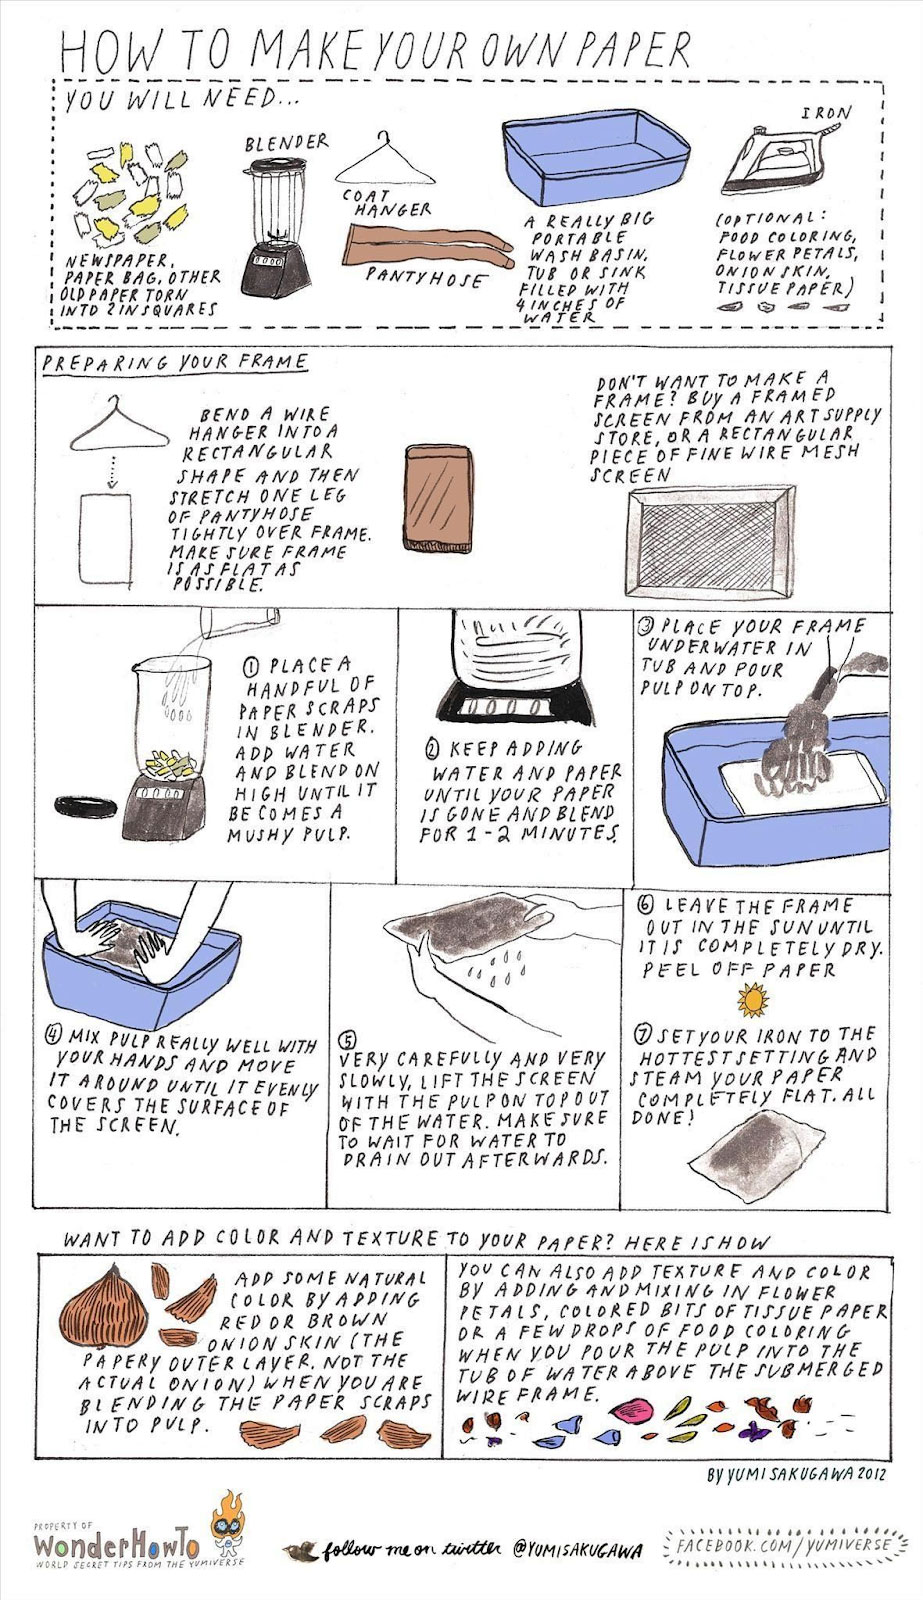 HOW TO MAKE YOUR OWN PAPER
YOU WILL NEED...
NEWSPAPER,
PAPER BAG, OTHER
OLD PAPER TORN
INTO 2 IN SQUARES
BLENDER
COAT
HANGER
PANTYHOSE
A REALLY BIG
PORTABLE
WASH BASIN,
TUB OR SINK
FILLED WITH
4 INCHES OF
WATER
IRON
(OPTIONAL:
FOOD COLORING,
FLOWER PETALS,
ONION SKIN,
TISSUE PAPER)
PREPARING YOUR FRAME
BEND A WIRE
HANGER INTO A
RECTANGULAR
SHAPE AND THEN
STRETCH ONE LEG
OF PANTYHOSE
TIGHTLY OVER FRAME.
MAKE SURE FRAME
IS AS FLAT AS
POSSIBLE.
DON'T WANT TO MAKE A
FRAME? BUY A FRAMED
SCREEN FROM AN ART SUPPLY
STORE, OR A RECTANGULAR
PIECE OF FINE WIRE MESH
SCREEN
① PLACE A
HANDFUL OF
PAPER SCRAPS
IN BLENDER.
ADD WATER
AND BLEND ON
HIGH UNTIL IT
BECOMES A
MUSHY PULP.
② KEEP ADDING
WATER AND PAPER
UNTIL YOUR PAPER
IS GONE AND BLEND
FOR 1-2 MINUTES.
③ PLACE YOUR FRAME
UNDERWATER IN
TUB AND POUR
PULP ON TOP.
④ MIX PULP REALLY WELL WITH
YOUR HANDS AND MOVE
IT AROUND UNTIL IT EVENLY
COVERS THE SURFACE OF
THE SCREEN.
⑤
VERY CAREFULLY AND VERY
SLOWLY, LIFT THE SCREEN
WITH THE PULP ON TOP OUT
OF THE WATER. MAKE SURE
TO WAIT FOR WATER TO
DRAIN OUT AFTERWARDS.
⑥ LEAVE THE FRAME
OUT IN THE SUN UNTIL
IT IS COMPLETELY DRY.
PEEL OFF PAPER
⑦ SET YOUR IRON TO THE
HOTTEST SETTING AND
STEAM YOUR PAPER
COMPLETELY FLAT. ALL
DONE!
WANT TO ADD COLOR AND TEXTURE TO YOUR PAPER? HERE IS HOW
ADD SOME NATURAL
COLOR BY ADDING
RED OR BROWN
ONION SKIN (THE
PAPERY OUTER LAYER, NOT THE
ACTUAL ONION) WHEN YOU ARE
BLENDING THE PAPER SCRAPS
INTO PULP.
YOU CAN ALSO ADD TEXTURE AND COLOR
BY ADDING AND MIXING IN FLOWER
PETALS, COLORED BITS OF TISSUE PAPER
OR A FEW DROPS OF FOOD COLORING
WHEN YOU POUR THE PULP INTO THE
TUB OF WATER ABOVE THE SUBMERGED
WIRE FRAME.
BY YUMI SAKUGAWA 2012
PROPERTY OF
WonderHowTo
WORLD SECRET TIPS FROM THE YUMIVERSE
follow me on twitter @YUMISAKUGAWA
FACEBOOK.COM/YUMIVERSE